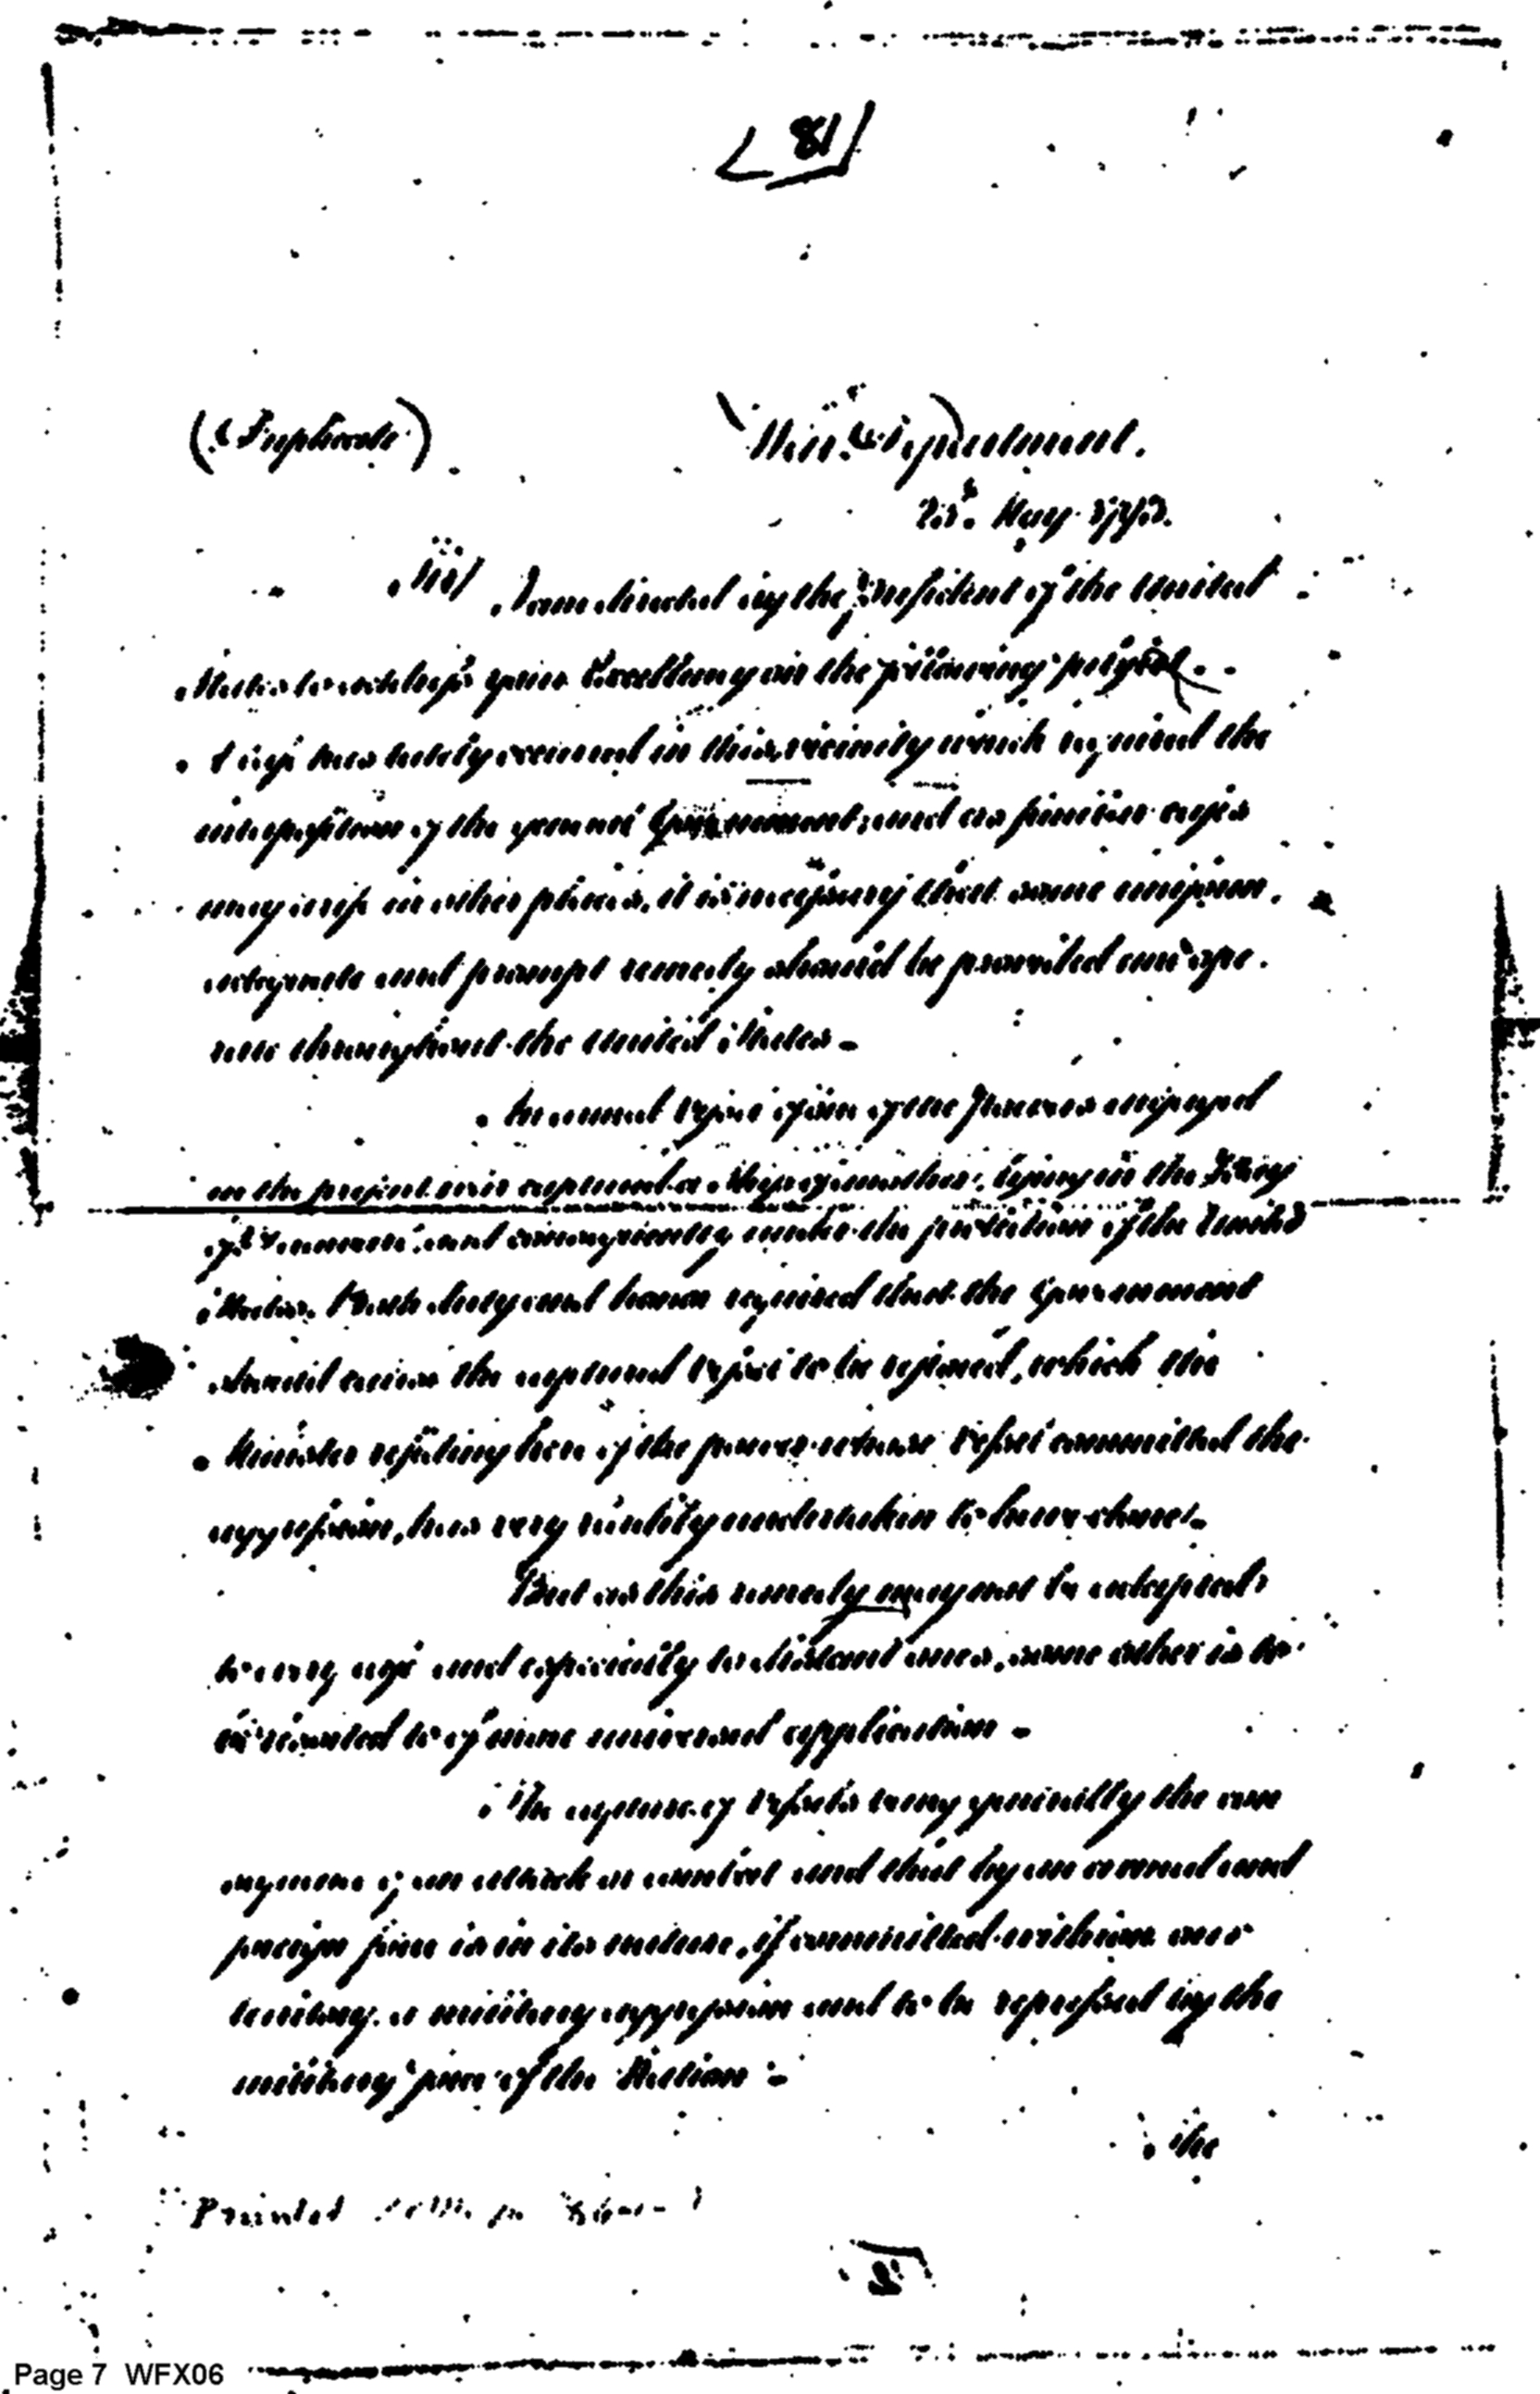 81
(Duplicate)
War Department.
May 1793.
Sir/ I am directed by the President of the United
States to address your Excellency on the following subject.
A case has lately occurred in this vicinity which required the
interposition of the general Government; and as similar cases
may arise in other places, it is necessary that some uniform,
adequate and prompt remedy should be provided and ope-
rate throughout the United States -
An armed vessel of one of the Powers engaged
in the present war captured a Ship of another, lying in the Bay
of Delaware, and consequently under the protection of the United
States. Both duty and honor required that the Government
should cause the captured vessel to be restored, which the
Minister residing here of the power whose vessel committed the
aggression, has very readily undertaken to have done.
But as this remedy may not be adapted
to every case and especially to distant ones, some other is to
be resorted to of more universal application -
The capture of vessels being generally the con
sequence of an attack or combat and that by an armed and
foreign force is in its nature, if committed within our
territory, a military aggression and to be repressed by the
military force of the Nation -
The
Printed
Page 7 WFX06